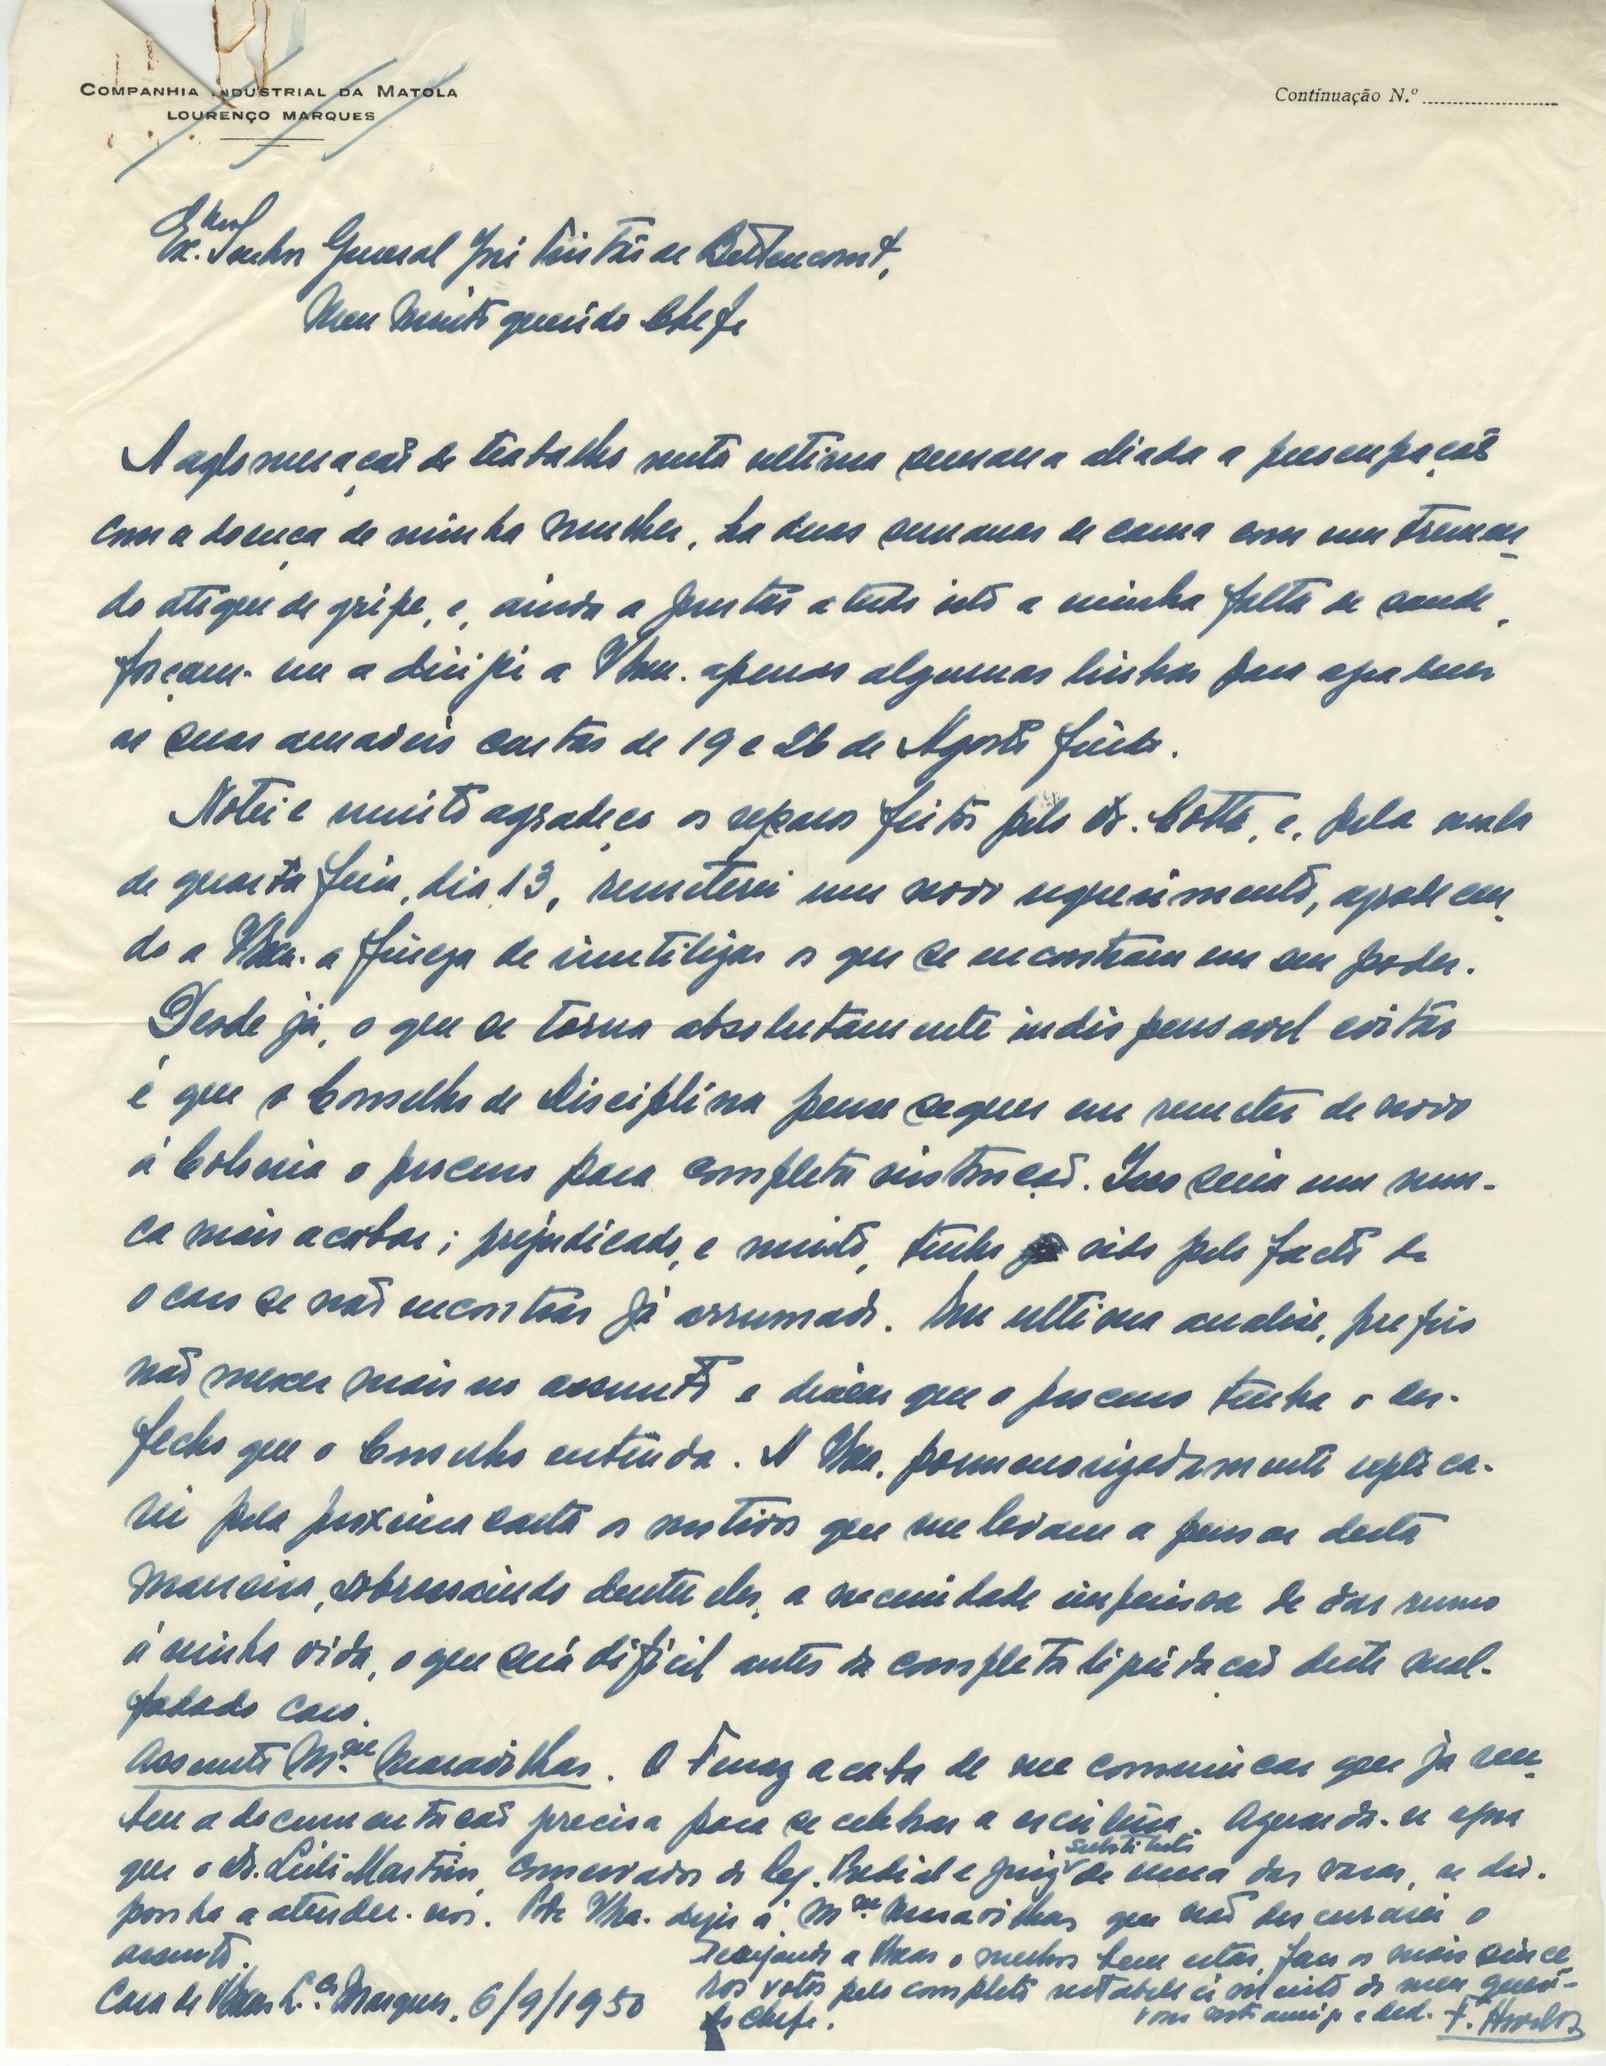 COMPANHIA INDUSTRIAL DA MATOLA
LOURENÇO MARQUES
Continuação N.º
Exmo. Senhor General José Tristão de Bettencourt,
Meu Muito querido Chefe
A aglomeração de trabalho nesta ultima semana aliada a preocupação
com a doença de minha mulher, ha duas semanas de cama com um tremen-
do ataque de gripe, e, ainda a juntar a tudo isto a minha falta de saude,
forçam-me a dirigir a VExa. apenas algumas linhas para agradecer
as suas amaveis cartas de 19 e 26 de Agosto findo.
Notei e muito agradeço os reparos feitos pelo Dr. Cotta, e, pela mala
de quarta feira, dia 13, remeterei um novo requerimento, agradecen-
do a VExa. a fineza de inutilizar os que se encontram em seu poder.
Desde já, o que se torna absolutamente indispensavel evitar
é que o Conselho de Disciplina pense sequer em remeter de novo
á Colonia o processo para completa instrução. Isso seria um nun-
ca mais acabar; prejudicado, e muito, tenho sido pelo facto de
o caso se não encontrar já arrumado. Em ultima analise, prefiro
não mexer mais no assunto e deixar que o processo tenha o des-
fecho que o Conselho entenda. A VExa. pormenorizadamente explica-
rei pela proxima carta os motivos que me levam a pensar desta
maneira, sobressaindo dentre eles, a necessidade imperiosa de dar rumo
á minha vida, o que será dificil antes da completa liquidação deste mal-
fadado caso.
Assunto Mme. Maravilhas. O Ferraz acaba de me comunicar que já
tem a documentação precisa para se celebrar a escritura. Aguarda-se agora
que o Dr. Leite Martins, Conservador do Reg. Predial e Juiz substituto de uma das varas, se dis-
ponha a atender-nos. Pode VExa. dizer á Mme. Maravilhas que não descurarei o
assunto.
Desejando a VExas o melhor bem estar, faço os mais since-
ros votos pelo completo restabelecimento do meu queri-
do Chefe.
Casa de VExas L.ço Marques, 6/9/1950
amigo e ded.